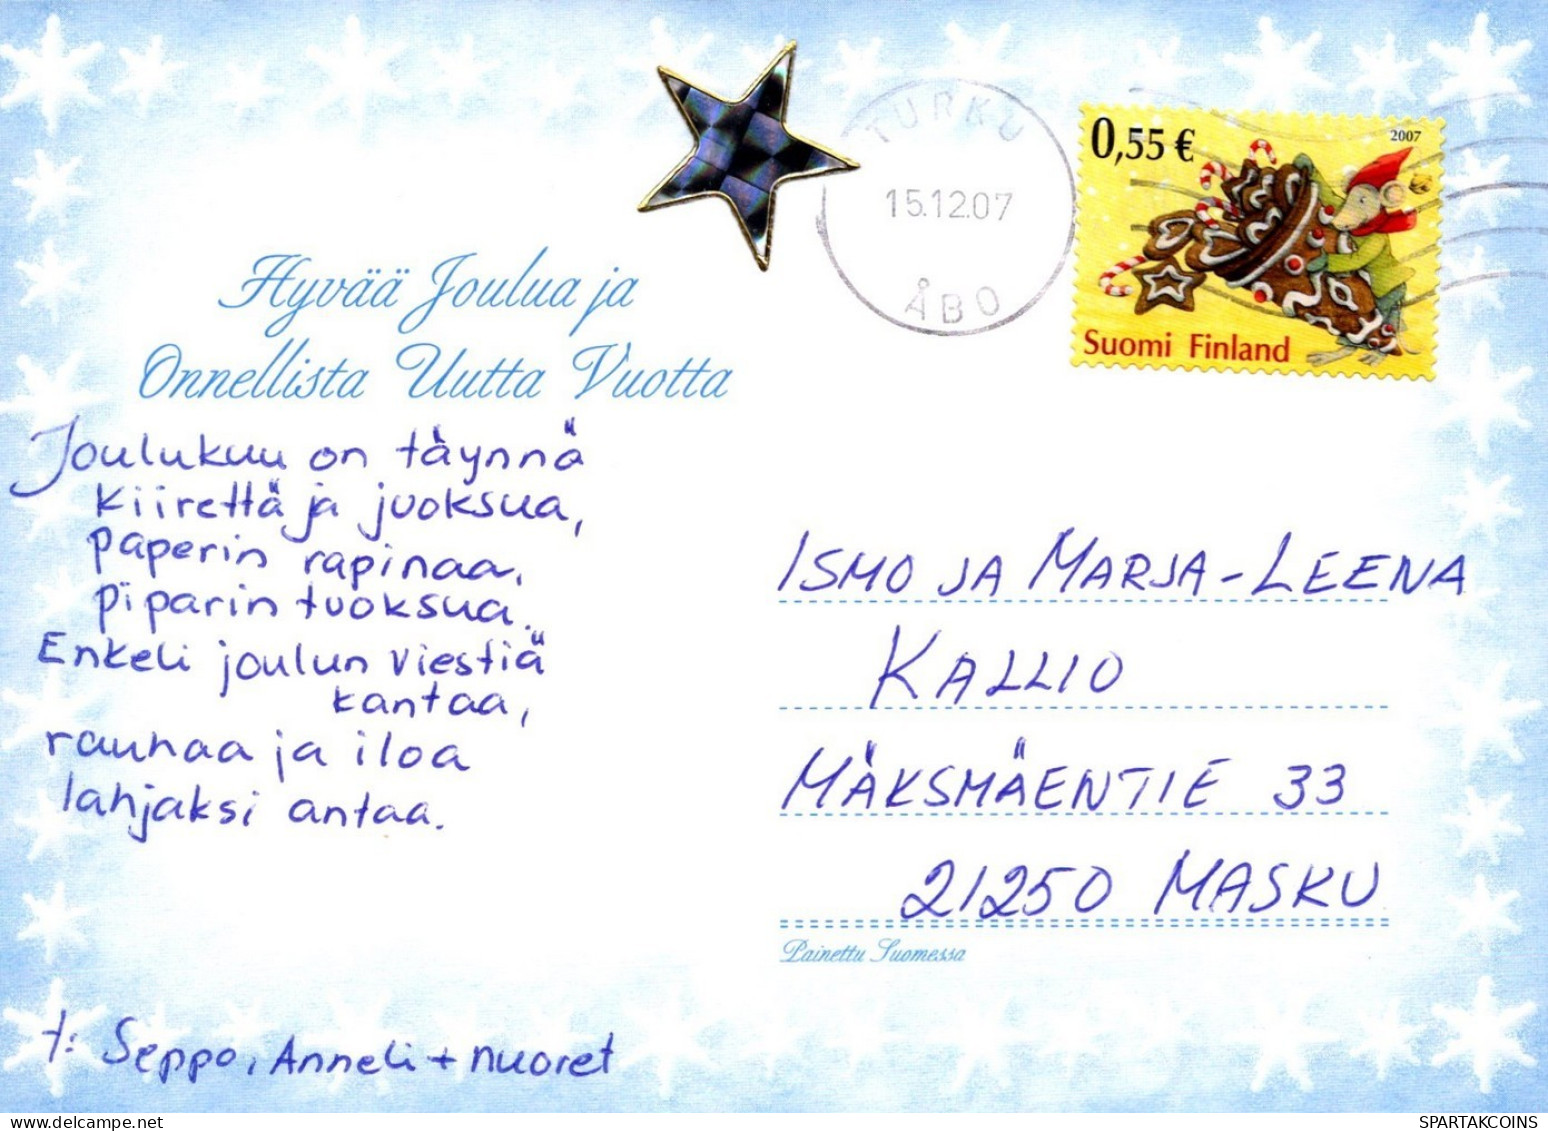 TURKU
15.12.07
ÅBO
0,55 €
2007
Suomi Finland
Hyvää Joulua ja
Onnellista Uutta Vuotta
Joulukuu on täynnä
kiirettä ja juoksua,
paperin rapinaa,
piparin tuoksua.
Enkeli joulun viestiä
kantaa,
rauhaa ja iloa
lahjaksi antaa.
t: Seppo, Anneli + nuoret
ISMO JA MARJA-LEENA
KALLIO
MÄKSMÄENTIE 33
21250 MASKU
Painettu Suomessa
SPARTAKCOINS